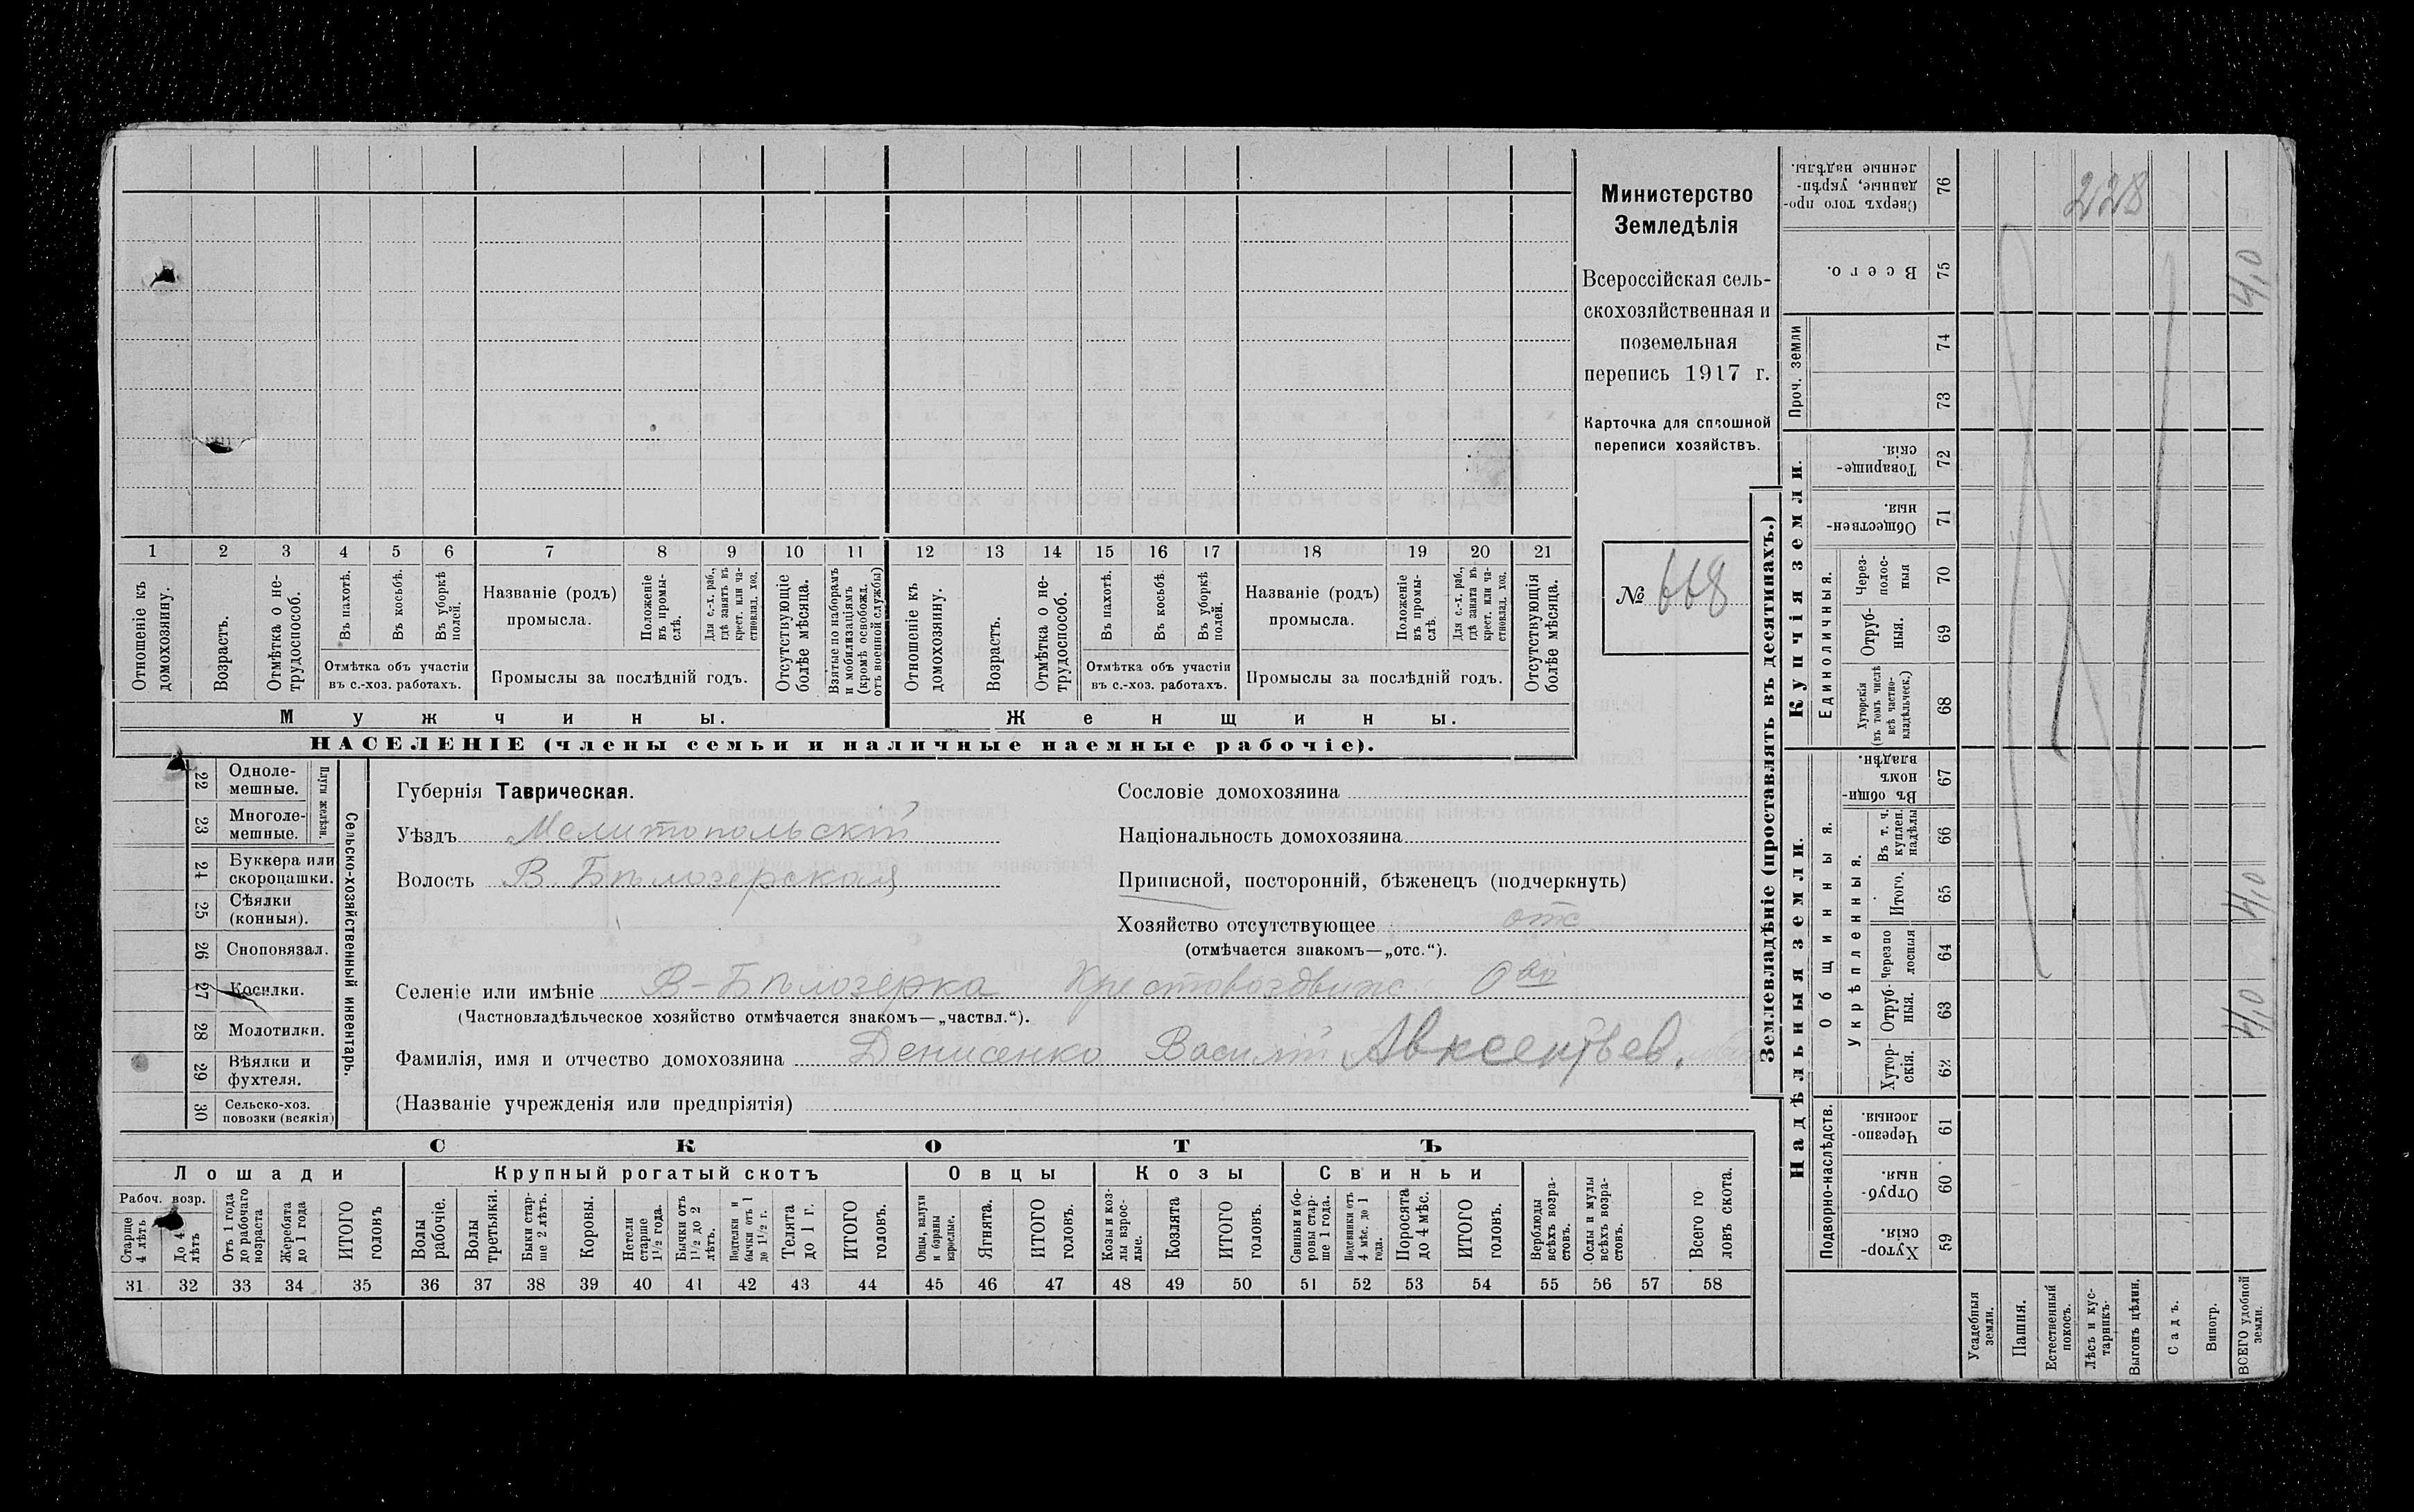 Министерство
Земледѣлія
Всероссійская сель-
скохозяйственная и
поземельная
перепись 1917 г.
Карточка для сплошной
переписи хозяйствъ.
№ 668
1 2 3 4 5 6 7 8 9 10 11 12 13 14 15 16 17 18 19 20 21
Отношеніе къ домохозяину.
Возрастъ.
Отмѣтка о не-трудоспособ.
Въ пахотѣ.
Въ косьбѣ.
Въ уборкѣ полей.
Отмѣтка объ участіи
въ с.-хоз. работахъ.
Названіе (родъ)
промысла.
Положеніе въ промы-слѣ.
Для с.-х. раб., гдѣ занятъ въ крест. или ча-стновлад. хоз.
Промыслы за послѣдній годъ.
Отсутствующіе болѣе мѣсяца.
Взятые по наборамъ и мобилизаціямъ (кромѣ освобожд. отъ военной службы)
Отношеніе къ домохозяину.
Возрастъ.
Отмѣтка о не-трудоспособ.
Въ пахотѣ.
Въ косьбѣ.
Въ уборкѣ полей.
Отмѣтка объ участіи
въ с.-хоз. работахъ.
Названіе (родъ)
промысла.
Положеніе въ промы-слѣ.
Для с.-х. раб., гдѣ занята въ крест. или ча-стновлад. хоз.
Промыслы за послѣдній годъ.
Отсутствующія болѣе мѣсяца.
Мужчины.
Женщины.
НАСЕЛЕНІЕ (члены семьи и наличные наемные рабочіе).
22 Одноле-мешные.
23 Многоле-мешные.
Плуги желѣзн.
24 Буккера или скоропашки.
25 Сѣялки (конныя).
26 Сноповязал.
27 Косилки.
28 Молотилки.
29 Вѣялки и фухтеля.
30 Сельско-хоз. повозки (всякія)
Сельско-хозяйственный инвентарь.
Губернія Таврическая.
Уѣздъ Мелитопольскій
Волость В Бѣлозерская
Сословіе домохозяина
Національность домохозяина
Приписной, посторонній, бѣженецъ (подчеркнуть)
Хозяйство отсутствующее отс
(отмѣчается знакомъ—„отс.“).
Селеніе или имѣніе В-Бѣлозерка Крестовоздвиж Ово
(Частновладѣльческое хозяйство отмѣчается знакомъ—„частвл.“).
Фамилія, имя и отчество домохозяина Денисенко Василій Авксентьев.
(Названіе учрежденія или предпріятія)
СКОТЪ
Лошади
Крупный рогатый скотъ
Овцы
Козы
Свиньи
Рабоч. возр.
Старше 4 лѣтъ
До 4 лѣтъ
Отъ 1 года до рабочаго возраста
Жеребята до 1 года
ИТОГО головъ
Волы рабочіе.
Волы третьяки.
Быки стар-ше 2 лѣтъ.
Коровы.
Нетели старше 1½ года.
Бычки отъ 1½ до 2 лѣтъ.
Подтелки и бычки отъ 1 до 1½ г.
Телята до 1 г.
ИТОГО головъ.
Овцы, валухи и бараны взрослые.
Ягнята.
ИТОГО головъ.
Козы и коз-лы взрос-лые.
Козлята
ИТОГО головъ.
Свиньи и бо-ровы стар-ше 1 года.
Подсвинки отъ 4 мѣс. до 1 года.
Поросята до 4 мѣс.
ИТОГО головъ.
Верблюды всѣхъ возра-стовъ.
Ослы и мулы всѣхъ возра-стовъ.
Всего го ловъ скота.
31 32 33 34 35 36 37 38 39 40 41 42 43 44 45 46 47 48 49 50 51 52 53 54 55 56 57 58
Землевладѣніе (проставлять въ десятинахъ.)
Купчія земли.
Надѣльныя земли.
Сверхъ того про-данные, укрѣп-ленные надѣлы. 76
228
Всего. 75
4,0
Проч. земли
74
73
Товарище-скія. 72
Обществен-ныя. 71
Единоличныя.
Через-полос-ныя 70
Отруб-ныя. 69
Хуторскія (въ томъ числѣ всѣ частно-владѣльческ.) 68
Общинныя.
Въ общи-номъ владѣн. 67
Укрѣпленныя.
Въ т. ч. куплен. надѣлы 66
Итого. 65
4,0
Черезпо лосныя 64
Отруб-ныя. 63
4,0
Хутор-скія. 62
Подворно-наслѣдств.
Черезпо-лосныя. 61
Отруб-ныя. 60
Хутор-скія. 59
Усадебныя земли.
Пашня.
Естественный покосъ.
Лѣсъ и кус-тарникъ.
Выгонъ цѣлин.
Садъ.
Виногр.
ВСЕГО удобной земли.